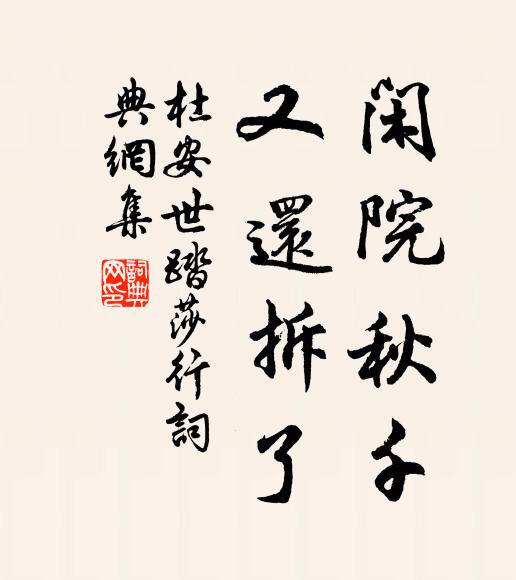 閑院秋千
又還拆了
杜安世踏莎行詞
典網集
詞典網印